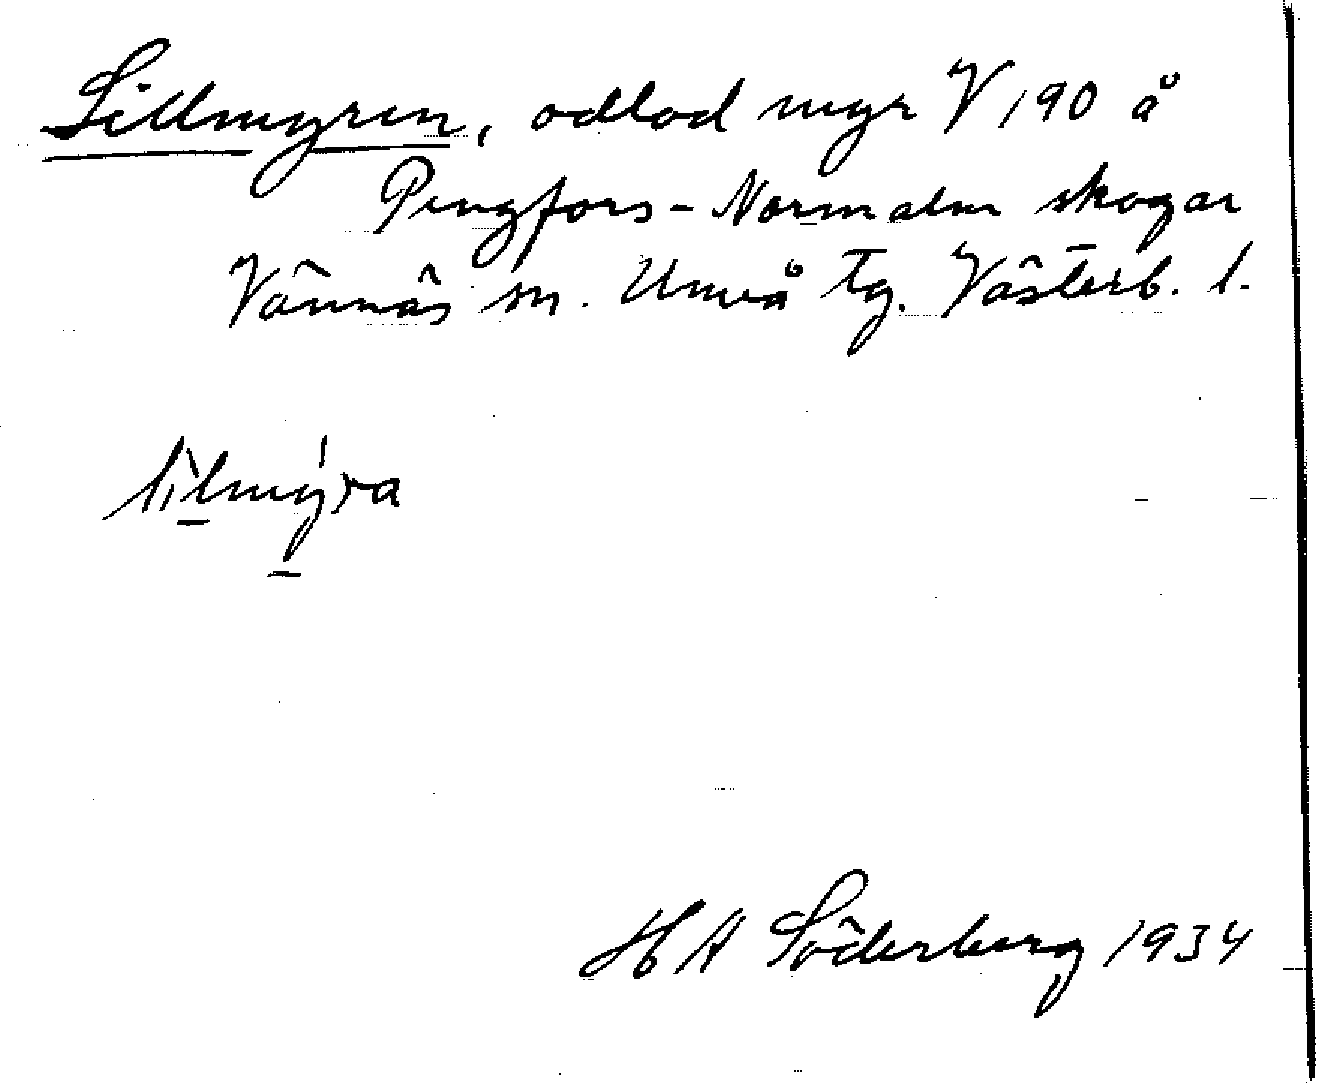 Sillmyren, odlad myr V 190 å
Pengfors-Normalm skogar
Vännäs sn. Umeå tg. Västerb. l.
sìlmýra
H A Söderberg 1934